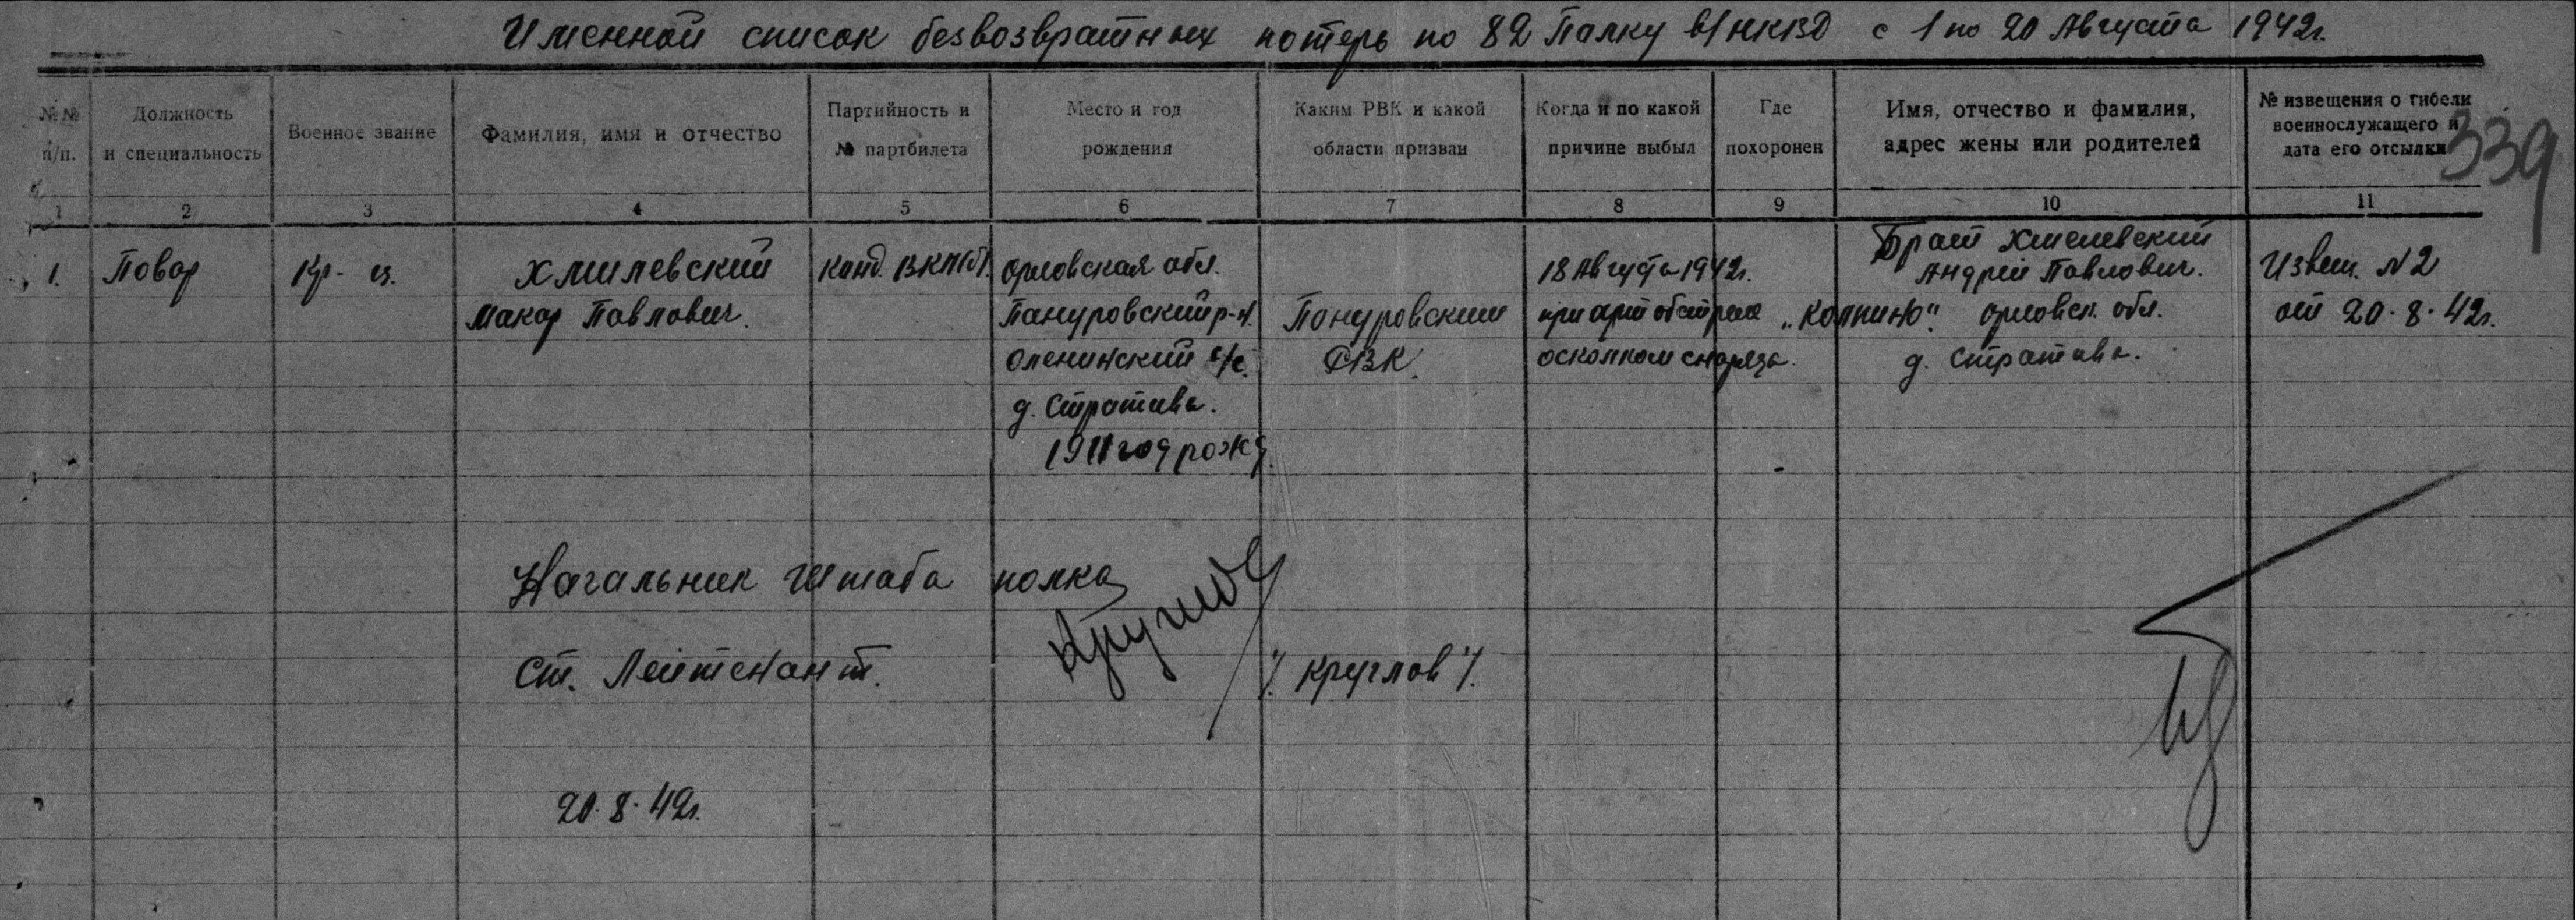 Именной список безвозвратных потерь по 82 Полку в/НКВД с 1 по 20 Августа 1942г.
339
№№ п/п.
Должность и специальность
Военное звание
Фамилия, имя и отчество
Партийность и № партбилета
Место и год рождения
Каким РВК и какой области призван
Когда и по какой причине выбыл
Где похоронен
Имя, отчество и фамилия, адрес жены или родителей
№ извещения о гибели военнослужащего и дата его отсылки
1 2 3 4 5 6 7 8 9 10 11
1.
Повар
Кр-ец.
Хмилевский
Макар Павлович.
Канд. ВКП(б).
Орловская обл.
Понуровский р-н.
Оленинский с/с.
д. Стратива.
1911 год рожд.
Понуровский
РВК.
18 Августа 1942г.
при артобстреле
осколком снаряда.
„Колпино".
Брат Хмелевский
Андрей Павлович.
Орловск. обл.
д. Стратива.
Извещ. №2
от 20.8.42г.
Начальник Штаба полка
Ст. Лейтенант.
Круглов
/. Круглов /.
20.8.42г.